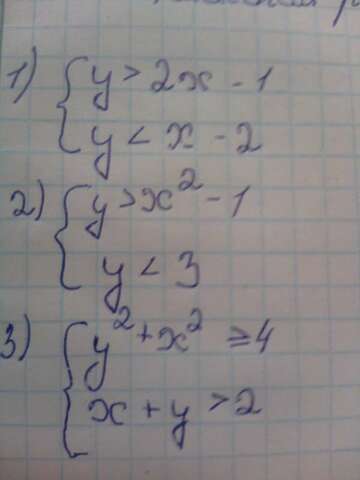 1) { y > 2x - 1
y < x - 2
2) { y > x² - 1
y < 3
3) { y² + x² ⩾ 4
x + y > 2